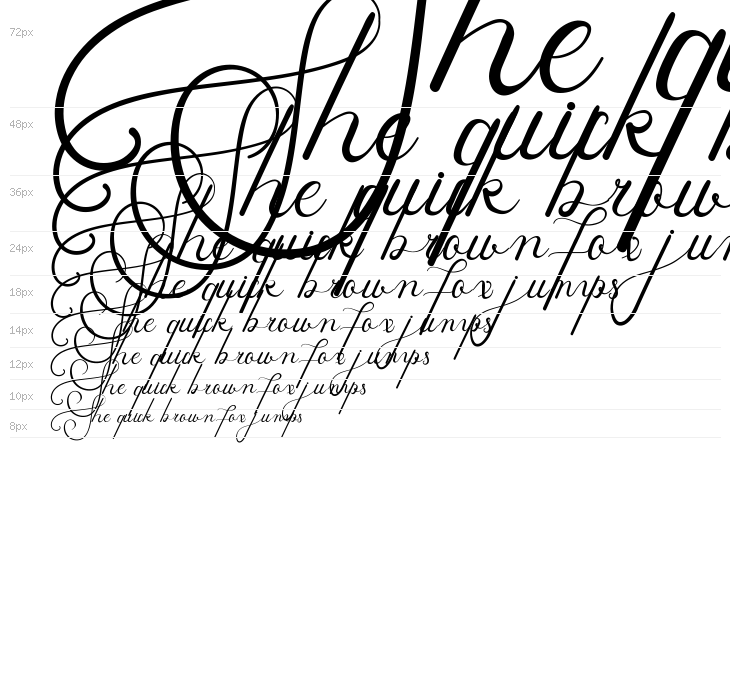 72px The q
48px The quick
36px The quick brow
24px The quick brown fox ju
18px The quick brown fox jumps
14px The quick brown fox jumps
12px The quick brown fox jumps
10px The quick brown fox jumps
8px The quick brown fox jumps